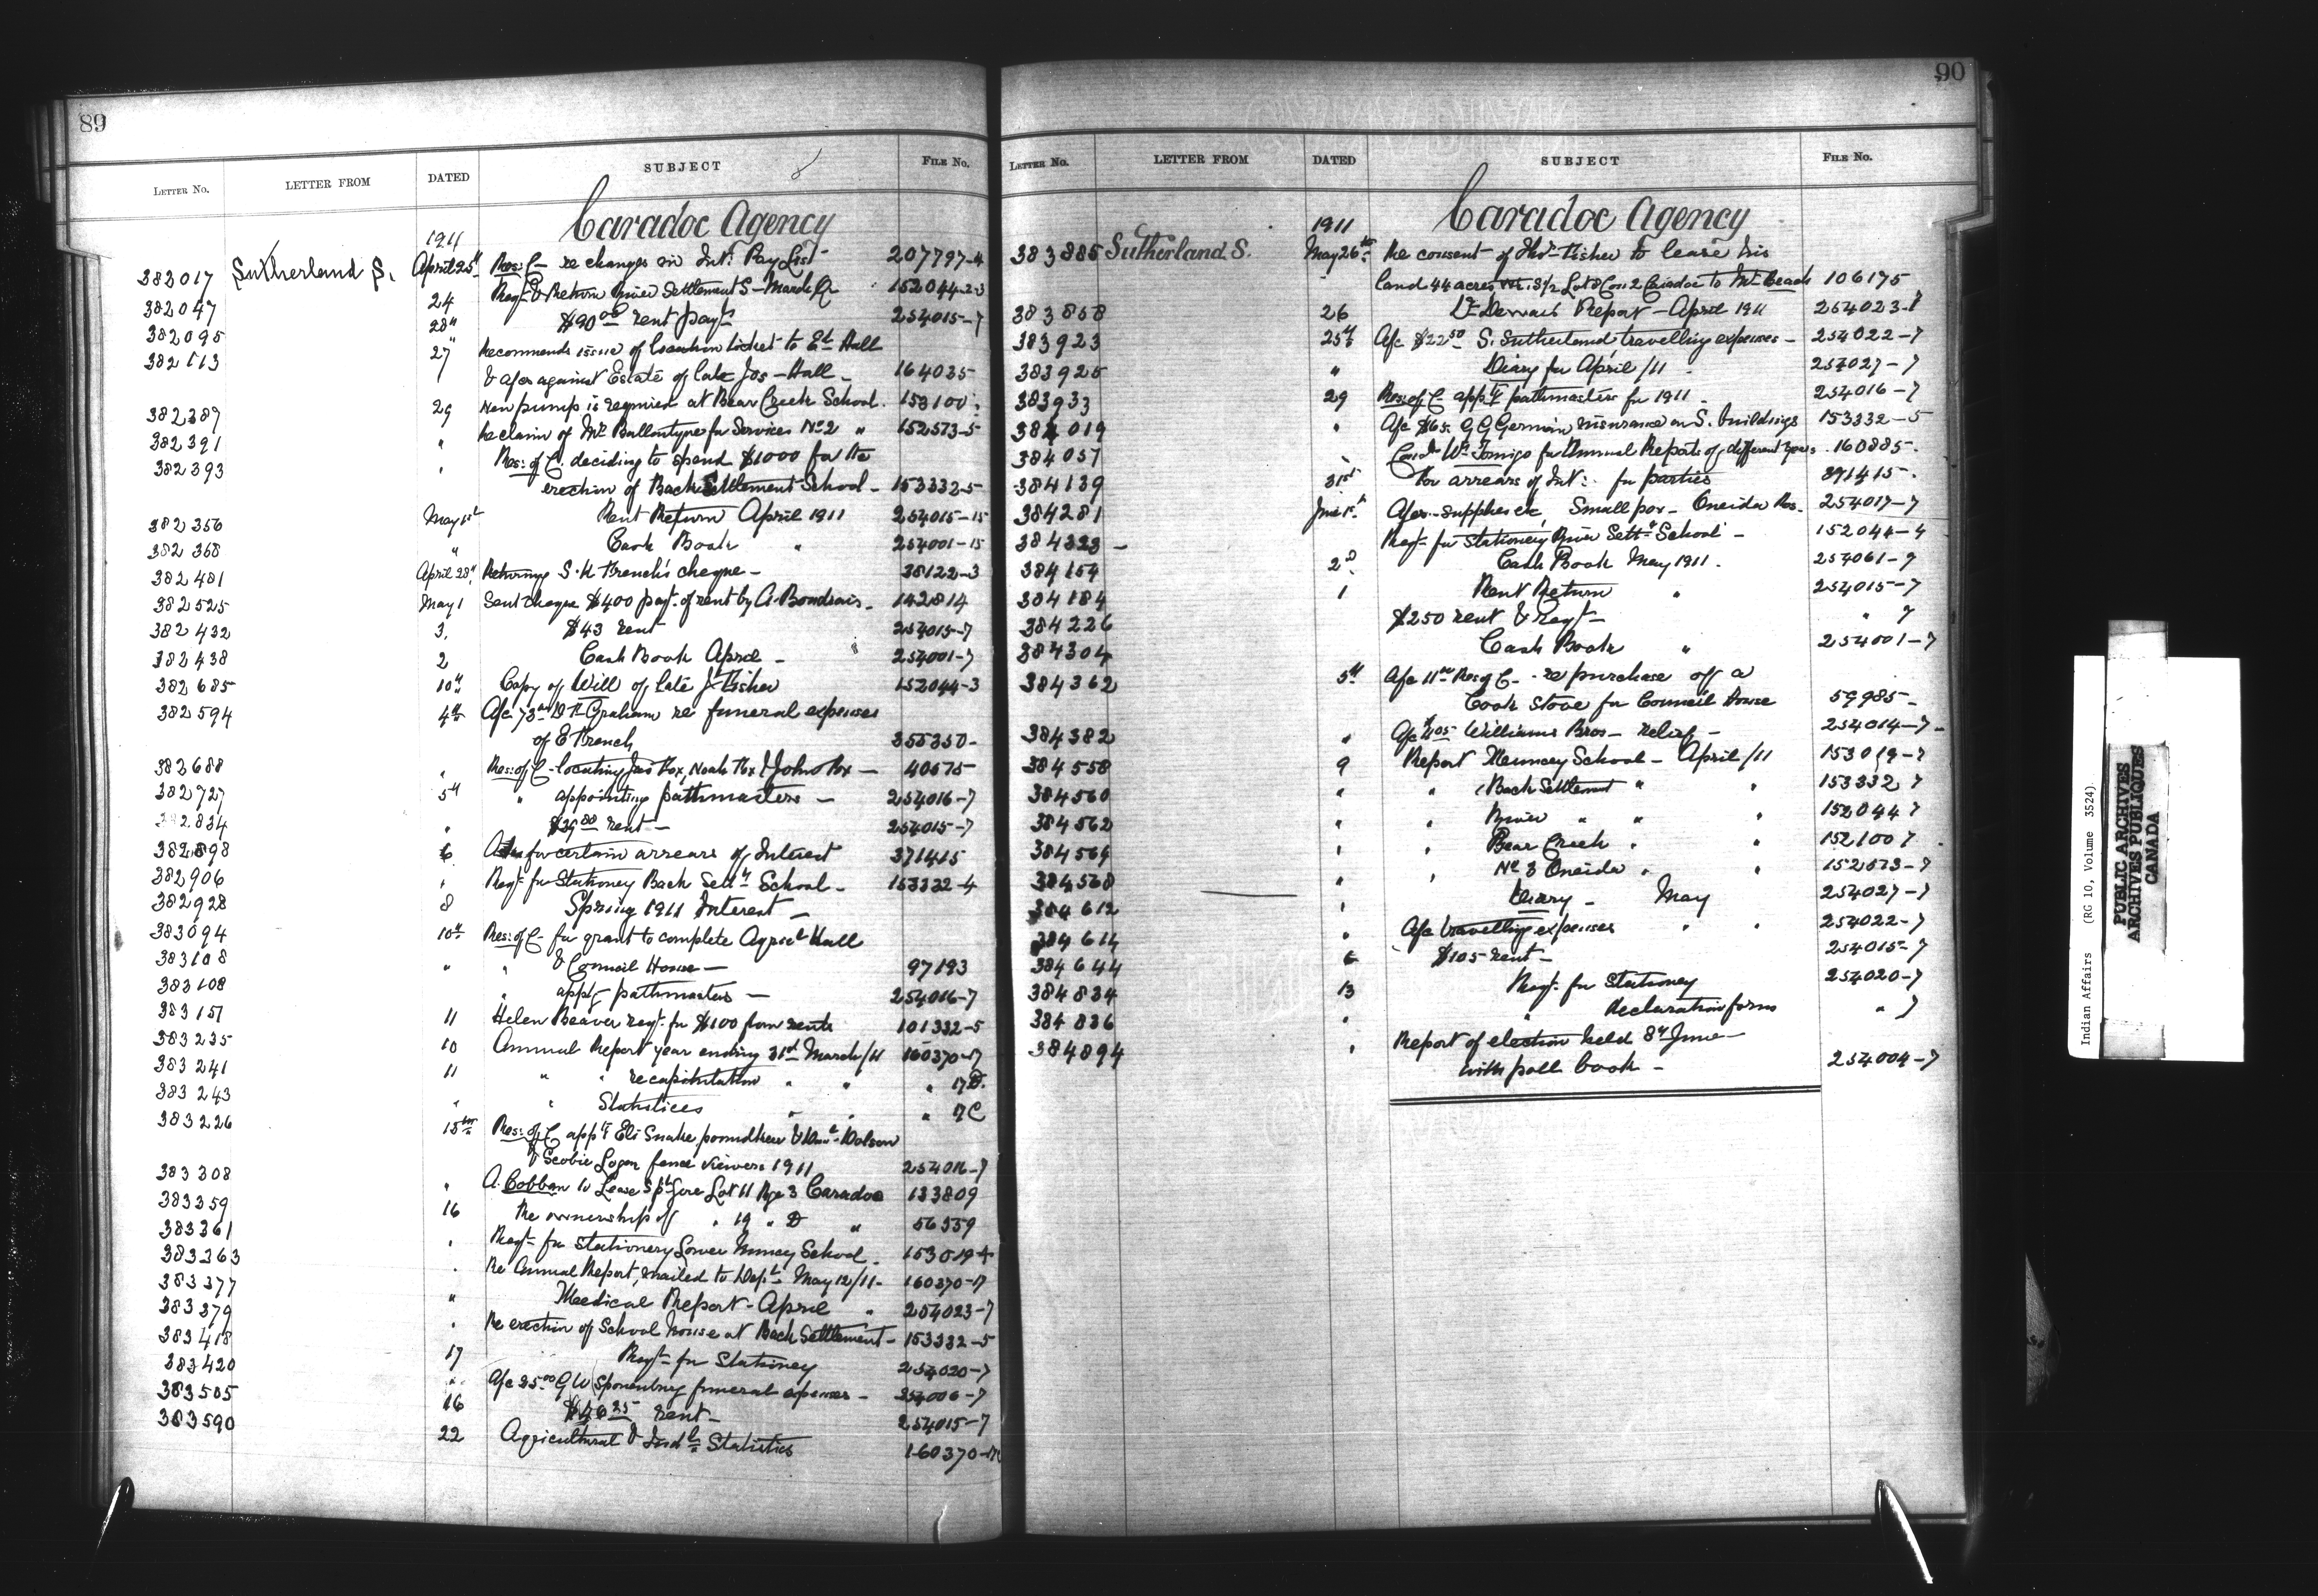 89
LETTER NO. LETTER FROM DATED SUBJECT FILE NO.
Caradoc Agency
1911
382017 Sutherland S. April 25th Res: C- re changes in Int: Pay List 207797-4
382047 24 Reqt & Return River Settlement S- March Qr 152044-2-3
382095 28" $90.00 rent payt 254015-7
382113 27" Recommends issue of location ticket to Et Hall
& a/cs against Estate of late Jos- Hall- 164035
382389 29 New pump is required at Bear Creek School. 153100
382391 " Re claim of Mr Ballantyne for Services No 2 " 152573-5
382393 " Res: of C. deciding to spend $1000 for the
erection of Back Settlement School- 153332-5
382356 May 1st Rent Return April 1911 254015-15
382368 " Cash Book " 254001-15
382481 April 28th Returning S. H French's cheque- 38122-3
382525 May 1 Sent cheque $400 payt. of rent by A. 142814
382432 3. $43 rent 254015-7
382438 2 Cash Book April - 254001-7
382685 10th Copy of Will of late J Fisher 152044-3
382594 4th A/c 73.00 D H Graham re funeral expenses
of E French 355350-
382688 " Res: of C- locating Jas Fox, Noah Fox & John Fox - 40675
382727 5th " appointing pathmasters - 254016-7
382834 " $39.00 rent- 254015-7
382898 6 for certain arrears of Interest 371415
382906 " Reqt for Stationery Back Settt School- 153332-4
382928 8 Spring 1911 Interest -
383094 10th Res: of C- for grant to complete Agricl Hall
383108 " " & Council House- 97193
383108 " appt- pathmasters - 254016-7
383157 11 Helen Beaver reqt. for $100 from rents 101332-5
383235 10 Annual Report year ending 31st March/11 160370-17
383241 11 " " recapitulation " " " 17D.
383243 " " Statistics " " " 17C
383226 15th Res: of C appt Eli Snake poundkeeper & Dolson
& Scobie Logan fence viewers 1911 254016-7
383308 " A. Cobban to Lease Gore Lot 11 Rge 3 Caradoc 133809
383359 16 Re ownership of " 19 " D " 56359
383361 " Reqt- for stationery Lower Muncey School. 153019-4
383363 " Re Annual Report, mailed to Dept. May 12/11- 160370-17
383377 " Medical Report- April " 254023-7
383379 " Re erection of School house at Back Settlement- 153332-5
383418 17 Reqt- for Stationery 254020-7
383420 " A/c 35.00 G W Sponenburg funeral expenses - 254006-7
383505 16 rent- 254015-7
383590 22 Agricultural & Indl Statistics 160370-17C
90
LETTER NO. LETTER FROM DATED SUBJECT FILE NO.
Caradoc Agency
1911
383885 Sutherland S. May 26th Re consent of Thos- Fisher to lease his
land 44 acres S½ Lot 8 Con 2 Caradoc to Mr Beach 106175
383858 26 Report - April 1911 254023-7
383923 25th A/c $22.50 S. Sutherland travelling expenses - 254022-7
383925 " Diary for April/11 254027-7
383933 29 Res: of C- appt pathmasters for 1911 - 254016-7
384019 " A/c $65. G G German insurance on S. buildings 153332-5
384057 " for Annual Reports of different years. 160885.
384139 31st for arrears of Int: for parties 371415.
384281 June 1st A/cs- supplies &c, Small pox- Oneida Res. 254017-7
384323 - Reqt- for stationery River Settt School - 152044-4
384154 2d. Cash Book May 1911. 254061-7
384184 1 Rent Return " 254015-7
384226 $250 rent & Reqt- " 7
384304 Cash Book " 254001-7
384362 5th A/c 11.00 Res of C- re purchase off a
Cook Stove for Council House 59985-
384382 " A/c Williams Bros- relief- 254014-7-
384558 9 Report Muncey School- April/11 153019-7
384560 " " Back Settlement " " 153332 7
384562 " River " " " 152044 7
384564 " " Bear Creek " " 152100 7
384568 " " No 3 Oneida " " 152573-7
384612 " Diary - May 254027-7
384614 " A/c travelling expenses " " 254022-7
384644 6 $105 rent- 254015-7
384834 13 Reqt. for Stationery 254020-7
384836 " " Declaration forms " 7
384894 " Report of election held 8th June-
with poll book - 254004-7
Indian Affairs (RG 10, Volume 3524)
PUBLIC ARCHIVES
ARCHIVES PUBLIQUES
CANADA